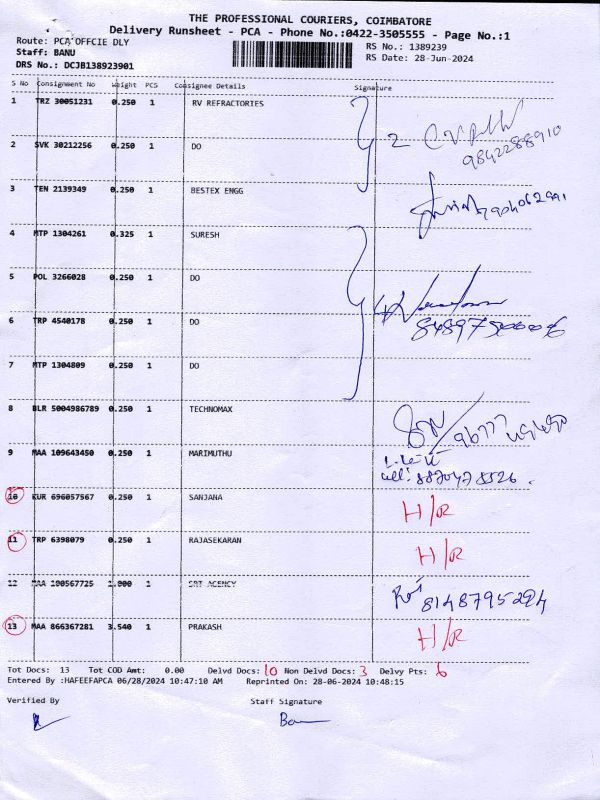 THE PROFESSIONAL COURIERS, COIMBATORE
Delivery Runsheet - PCA - Phone No.:0422-3505555 - Page No.:1
Route: PCA OFFCIE DLY
RS No.: 1389239
Staff: BANU
RS Date: 28-Jun-2024
DRS No.: DCJB138923901
S No Consignment No Weight PCS Consignee Details Signature
1 TRZ 30051231 0.250 1 RV REFRACTORIES
2 SVK 30212256 0.250 1 DO 2 9842288910
3 TEN 2139349 0.250 1 BESTEX ENGG
4 MTP 1304261 0.325 1 SURESH
5 POL 3266028 0.250 1 DO
6 TRP 4540178 0.250 1 DO
7 MTP 1304809 0.250 1 DO
8 BLR 5004986789 0.250 1 TECHNOMAX
9 MAA 109643450 0.250 1 MARIMUTHU
cell: 8870478526.
10 KUR 696057567 0.250 1 SANJANA H/R
11 TRP 6398079 0.250 1 RAJASEKARAN H/R
12 MAA 190567725 1.000 1 SRT AGENCY 8148795294
13 MAA 866367281 3.540 1 PRAKASH H/R
Tot Docs: 13 Tot COD Amt: 0.00 Delvd Docs: 10 Non Delvd Docs: 3 Delvy Pts: 6
Entered By :HAFEEFAPCA 06/28/2024 10:47:10 AM Reprinted On: 28-06-2024 10:48:15
Verified By Staff Signature